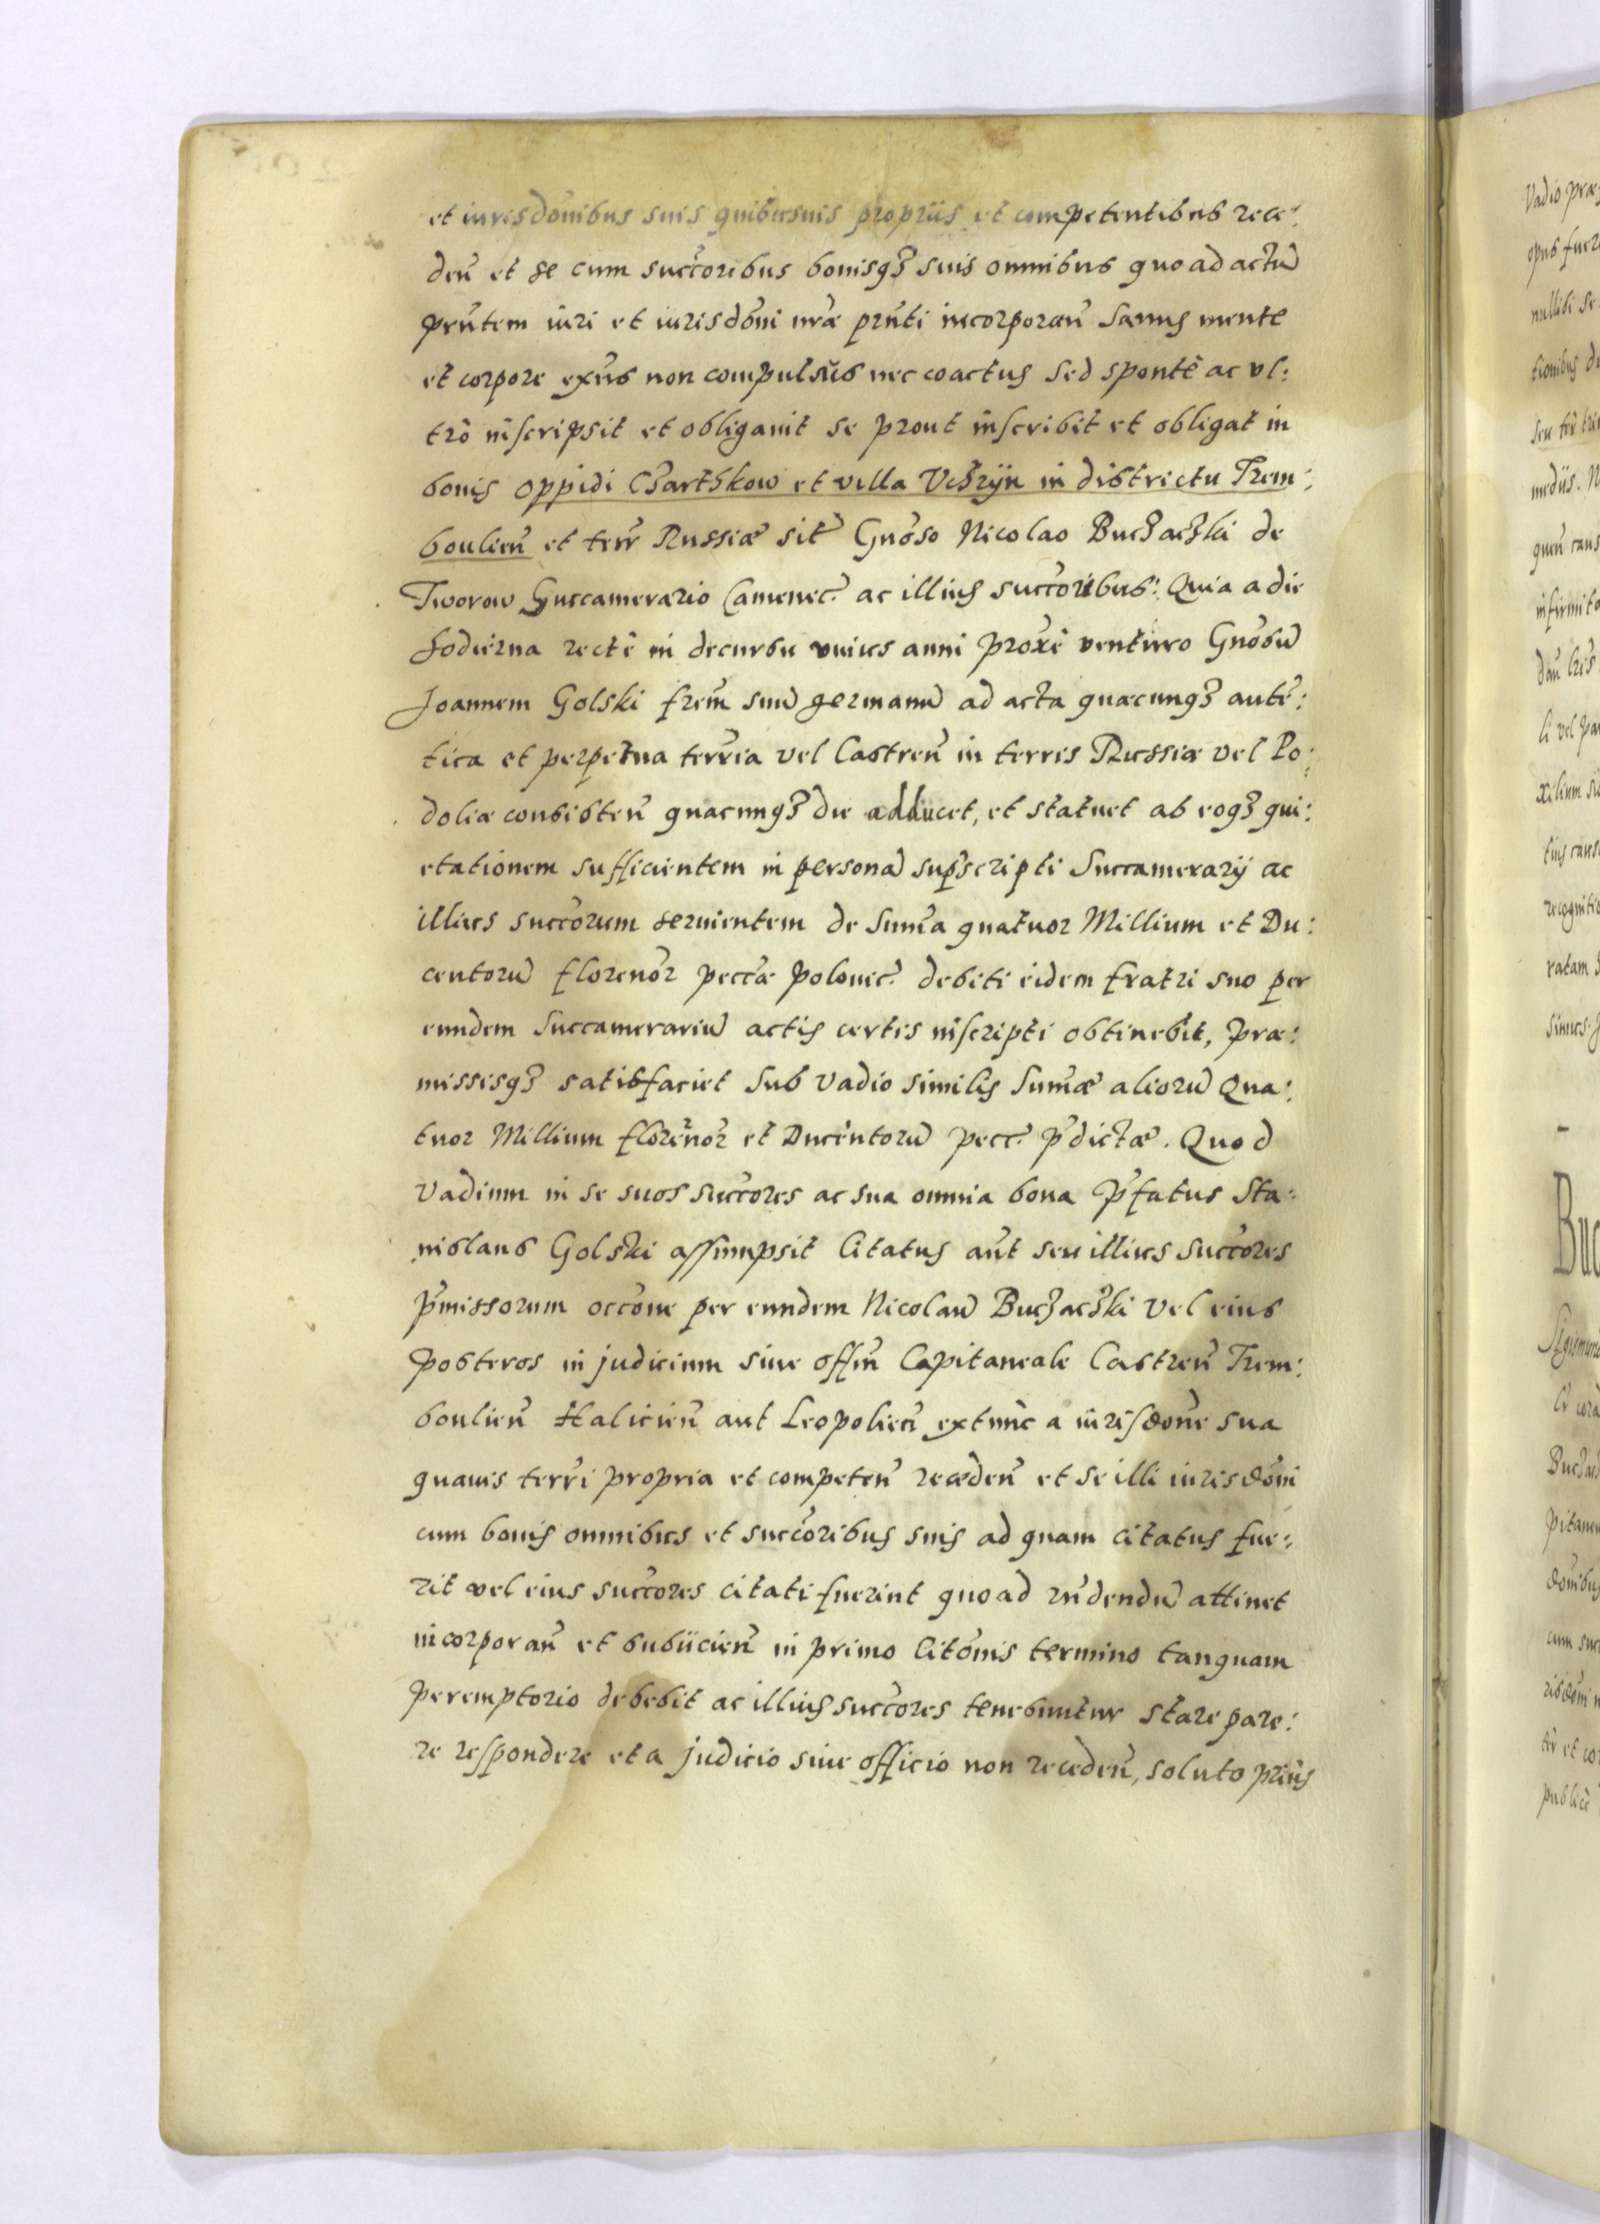 et iurisdõnibus suis quibusuis proprijs et competentibus rece:
deñ et se cum succõribus bonisqȝ suis omnibus quo ad actũ
prñtem iuri et iurisdõni nræ prñti incorporañ Sanus mente
et corpore exñs non compulsus nec coactus sed spontè ac vl:
trò inscripsit et obligauit se prout inscribit et obligat in
bonis oppidi Czarthkow et villa Vchryn in districtu Trem:
boulieñ et terr Russiæ sit Gnõso Nicolao Buczaczki de
Tworow Succamerario Camenec. ac illius succoribus: Quia a die
hodierna rectè in decursu vnius anni proxè venturo Gnõsũ
Joannem Golski frẽm suũ germanũ ad acta quæcunqȝ autẽ:
tica et perpetua terria vel Castreñ in terris Russiæ vel Po:
doliæ consisteñ quacunqȝ die adducet, et statuet ab eoqȝ qui:
etationem sufficientem in personã suprascripti Succamerarij ac
illius succorum seruientem de Summa quatuor Millium et Du:
centorũ florenor pecc̃æ polonic. debiti eidem fratri suo per
eundem Succamerariũ actis certis inscripti obtinebit, præ:
missisqȝ satisfaciet sub vadio similis Sum̃æ aliorũ Qua:
tuor Millium florenor et Ducentorũ pecc. p̃dictæ. Quod
vadium in se suos succores ac sua omnia bona p̃fatus Sta:
nislaus Golski assumpsit Citatus aũt seu illius succores
p̃missorum occõne per eundem Nicolaũ Buczaczki vel eius
posteros in judicium siue offiñ Capitaneale Castreñ Trem:
boulieñ Halicieñ aut Leopolieñ extunc a iurisdõne sua
quauis terri propria et competeñ recedeñ et se illi iurisdõni
cum bonis omnibus et succoribus suis ad quam citatus fue:
rit vel eius succores citati fuerint quo ad rñdendũ attinet
incorporañ et subijcieñ in primo citõnis termino tanquam
peremptorio debebit ac illius succores tenebuntur stare pare:
re respondere et a judicio siue officio non recedeñ, soluto prius